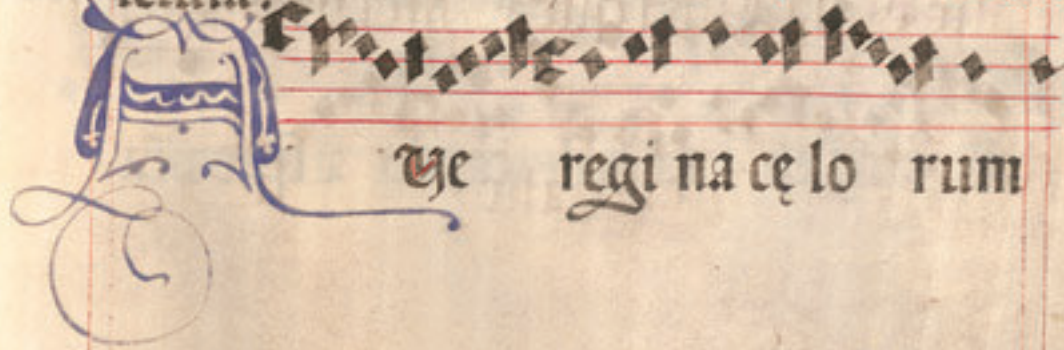 AVe regi na cę lo rum